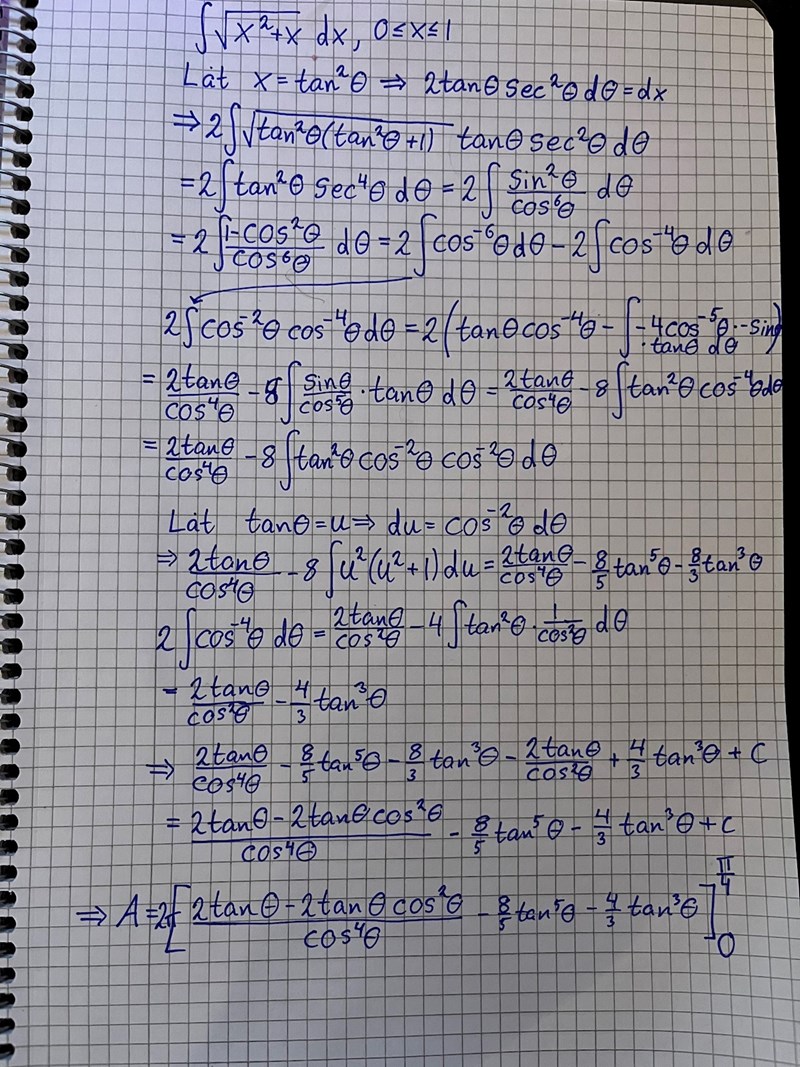 ∫√(x²+x) dx, 0≤x≤1
Låt x = tan²θ ⇒ 2tanθ sec²θ dθ = dx
⇒ 2∫√(tan²θ(tan²θ+1)) tanθ sec²θ dθ
= 2∫tan²θ sec⁴θ dθ = 2∫ sin²θ/cos⁶θ dθ
= 2∫ (1-cos²θ)/cos⁶θ dθ = 2∫cos⁻⁶θdθ - 2∫cos⁻⁴θ dθ
2∫cos⁻²θ cos⁻⁴θ dθ = 2(tanθcos⁻⁴θ - ∫-4cos⁻⁵θ·-sinθ
·tanθ dθ)
= 2tanθ/cos⁴θ - 8∫ sinθ/cos⁵θ · tanθ dθ = 2tanθ/cos⁴θ - 8∫tan²θ cos⁻⁴θdθ
= 2tanθ/cos⁴θ - 8∫tan²θcos⁻²θ cos⁻²θ dθ
Låt tanθ = u ⇒ du = cos⁻²θ dθ
⇒ 2tanθ/cos⁴θ - 8∫u²(u²+1)du = 2tanθ/cos⁴θ - 8/5 tan⁵θ - 8/3 tan³θ
2∫cos⁻⁴θ dθ = 2tanθ/cos²θ - 4∫tan²θ · 1/cos²θ dθ
= 2tanθ/cos²θ - 4/3 tan³θ
⇒ 2tanθ/cos⁴θ - 8/5 tan⁵θ - 8/3 tan³θ - 2tanθ/cos²θ + 4/3 tan³θ + C
= (2tanθ - 2tanθcos²θ)/cos⁴θ - 8/5 tan⁵θ - 4/3 tan³θ + C
⇒ A = 2[(2tanθ - 2tanθcos²θ)/cos⁴θ - 8/5 tan⁵θ - 4/3 tan³θ]₀^(π/4)